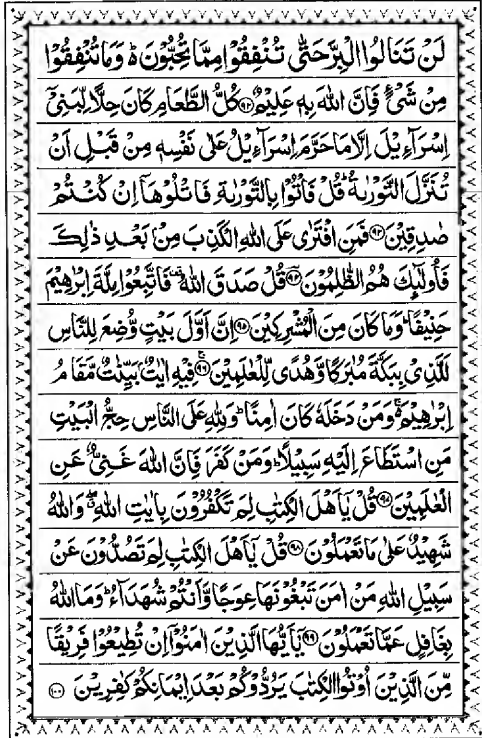 لَنْ تَنَالُوا الْبِرَّ حَتّٰى تُنْفِقُوْا مِمَّا تُحِبُّوْنَ ؕ وَمَا تُنْفِقُوْا
مِنْ شَیْءٍ فَاِنَّ اللّٰهَ بِهٖ عَلِیْمٌ ﴿۹۲﴾ كُلُّ الطَّعَامِ كَانَ حِلًّا لِّبَنِیْۤ
اِسْرَآءِیْلَ اِلَّا مَا حَرَّمَ اِسْرَآءِیْلُ عَلٰى نَفْسِهٖ مِنْ قَبْلِ اَنْ
تُنَزَّلَ التَّوْرٰىةُ ؕ قُلْ فَاْتُوْا بِالتَّوْرٰىةِ فَاتْلُوْهَاۤ اِنْ كُنْتُمْ
صٰدِقِیْنَ ﴿۹۳﴾ فَمَنِ افْتَرٰى عَلَى اللّٰهِ الْكَذِبَ مِنْۢ بَعْدِ ذٰلِكَ
فَاُولٰٓئِكَ هُمُ الظّٰلِمُوْنَ ﴿۹۴﴾ قُلْ صَدَقَ اللّٰهُ ۫ فَاتَّبِعُوْا مِلَّةَ اِبْرٰهِیْمَ
حَنِیْفًا ؕ وَمَا كَانَ مِنَ الْمُشْرِكِیْنَ ﴿۹۵﴾ اِنَّ اَوَّلَ بَیْتٍ وُّضِعَ لِلنَّاسِ
لَلَّذِیْ بِبَكَّةَ مُبٰرَكًا وَّهُدًى لِّلْعٰلَمِیْنَ ﴿۹۶﴾ فِیْهِ اٰیٰتٌۢ بَیِّنٰتٌ مَّقَامُ
اِبْرٰهِیْمَ ۚ۬ وَمَنْ دَخَلَهٗ كَانَ اٰمِنًا ؕ وَلِلّٰهِ عَلَى النَّاسِ حِجُّ الْبَیْتِ
مَنِ اسْتَطَاعَ اِلَیْهِ سَبِیْلًا ؕ وَمَنْ كَفَرَ فَاِنَّ اللّٰهَ غَنِیٌّ عَنِ
الْعٰلَمِیْنَ ﴿۹۷﴾ قُلْ یٰۤاَهْلَ الْكِتٰبِ لِمَ تَكْفُرُوْنَ بِاٰیٰتِ اللّٰهِ ۖۗ وَاللّٰهُ
شَهِیْدٌ عَلٰى مَا تَعْمَلُوْنَ ﴿۹۸﴾ قُلْ یٰۤاَهْلَ الْكِتٰبِ لِمَ تَصُدُّوْنَ عَنْ
سَبِیْلِ اللّٰهِ مَنْ اٰمَنَ تَبْغُوْنَهَا عِوَجًا وَّاَنْتُمْ شُهَدَآءُ ؕ وَمَا اللّٰهُ
بِغَافِلٍ عَمَّا تَعْمَلُوْنَ ﴿۹۹﴾ یٰۤاَیُّهَا الَّذِیْنَ اٰمَنُوْۤا اِنْ تُطِیْعُوْا فَرِیْقًا
مِّنَ الَّذِیْنَ اُوْتُوا الْكِتٰبَ یَرُدُّوْكُمْ بَعْدَ اِیْمَانِكُمْ كٰفِرِیْنَ ﴿۱۰۰﴾